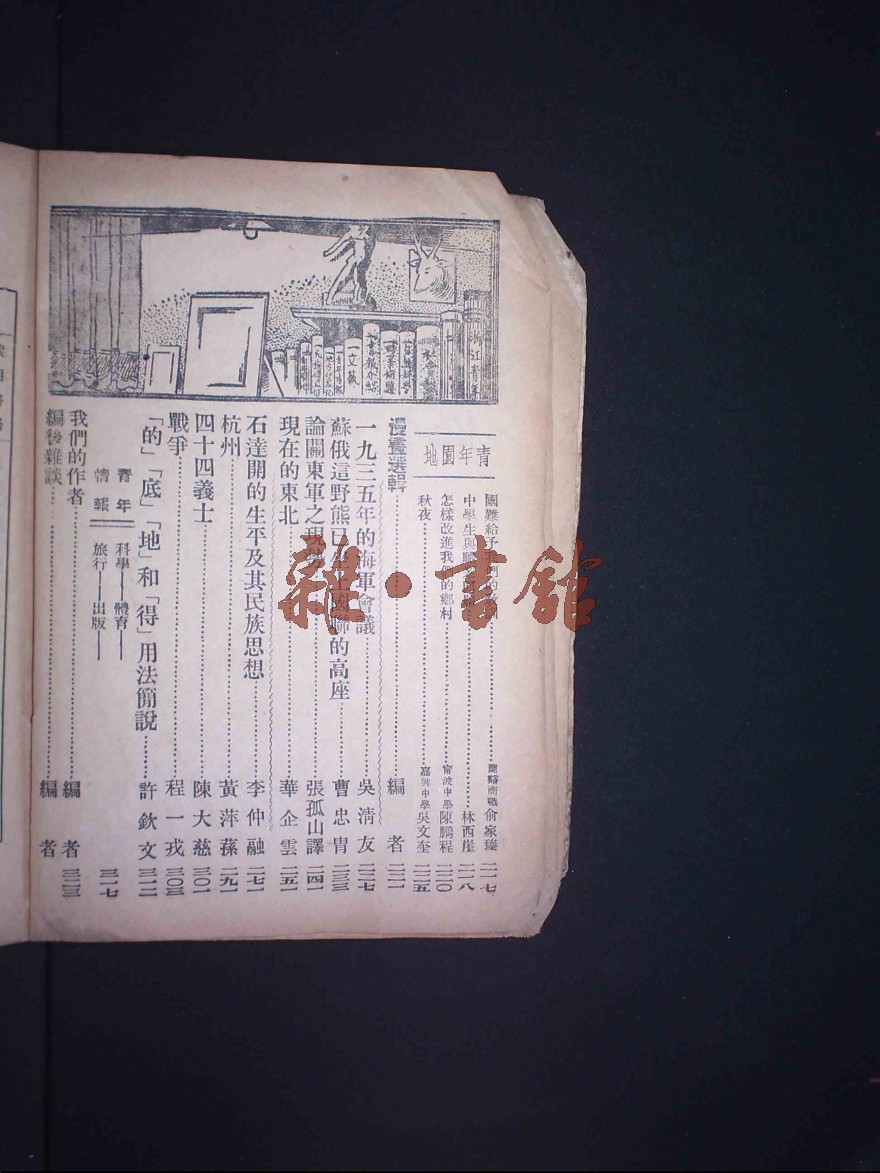 青年園地
國難給予我們的
蘭谿南職 俞家瑧 二一七
中學生與
林西崖 二一八
怎樣改進我們的鄉村
甯波中學 陳鵬程 二二〇
秋夜
嘉興中學 吳文奎 二二五
漫畫選輯
編者 二二一
一九三五年的海軍會議
吳清友 二二七
蘇俄這野熊已坐上國聯的高座
曹忠胄 二三三
論關東軍之現勢
張孤山譯 二四一
現在的東北
華企雲 二五一
石達開的生平及其民族思想
李仲融 二七一
杭州
黃萍蓀 二九一
四十四義士
陳大慈 三〇一
戰爭
程一戎 三〇三
「的」「底」「地」和「得」用法簡說
許欽文 三一二
青年情報
科學——體育——
旅行——出版——
三一七
我們的作者
編者 三二三
編後雜談
編者
浙江青年
雜·書館